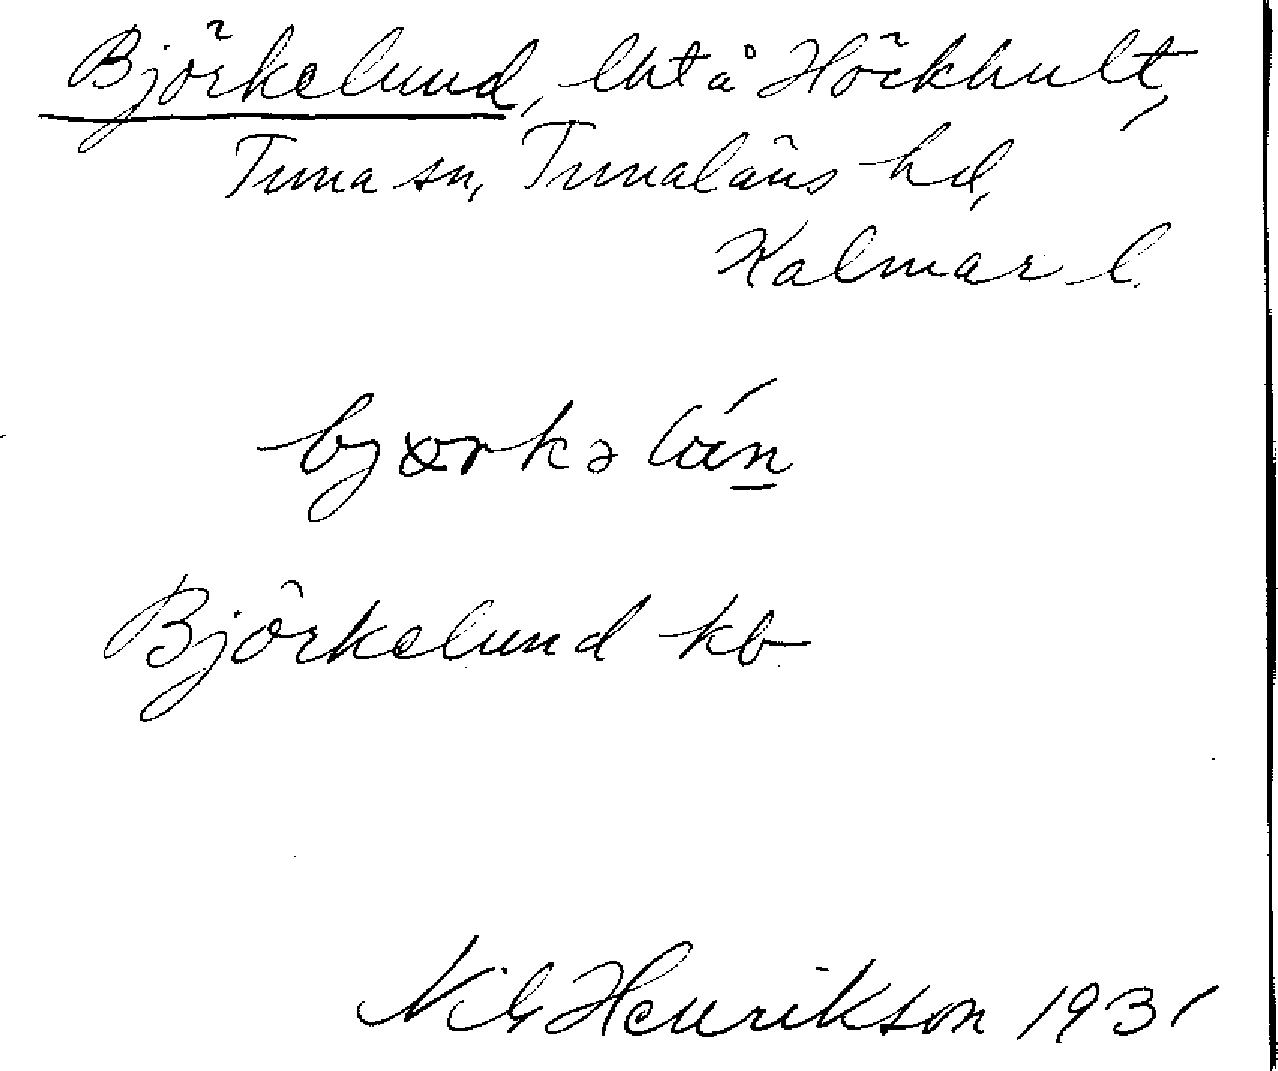 Björkelund, lht å Hökhult,
Tuna sn, Tunaläns hd,
Kalmar l.
Björkelund kb
Nils Henrikson 1931